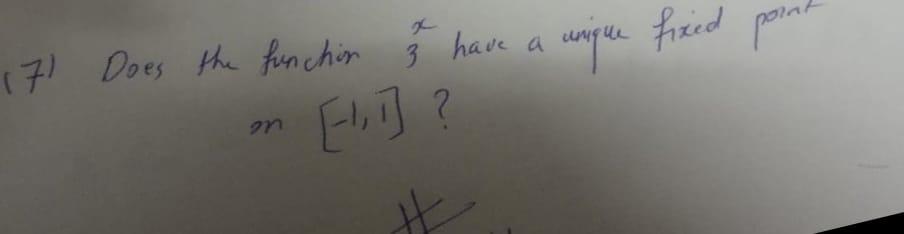 (7) Does the function 3^x have a unique fixed point
on [-1, 1] ?